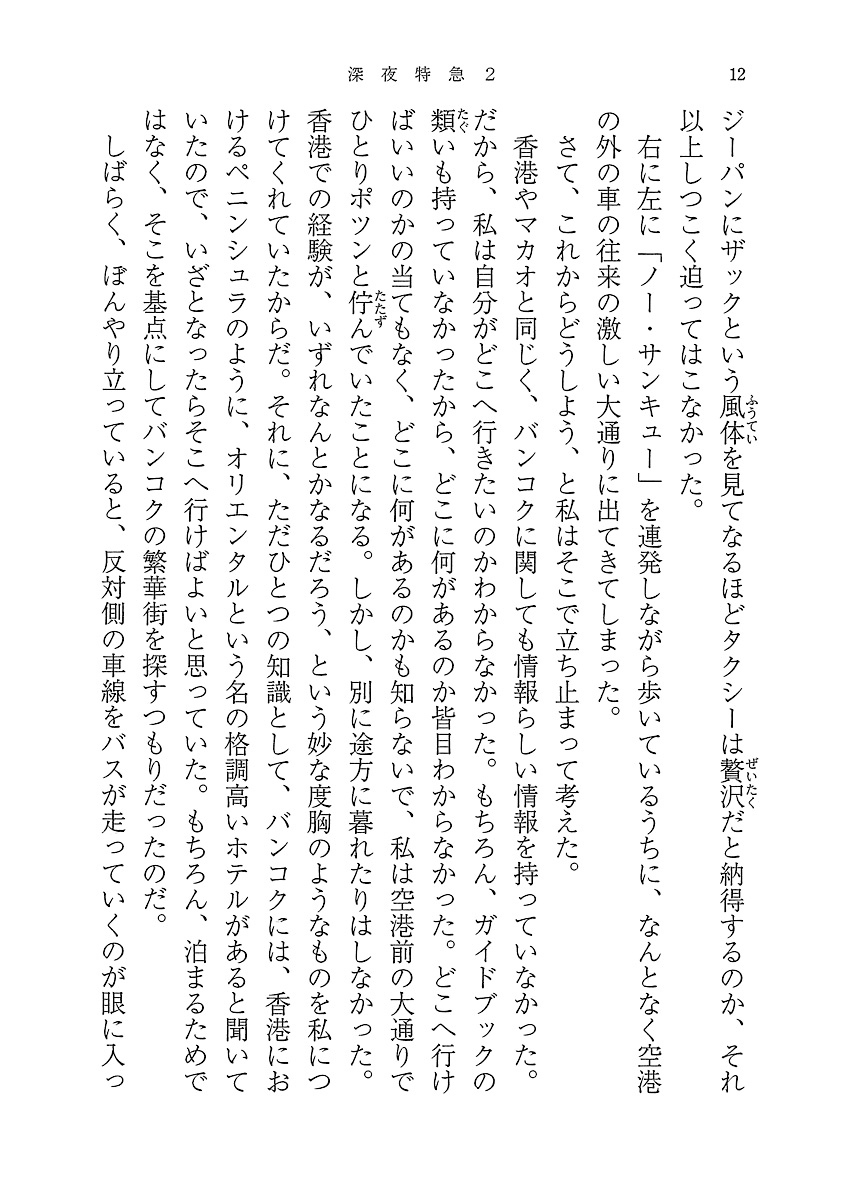 深夜特急2
12
ジーパンにザックという風体を見てなるほどタクシーは贅沢だと納得するのか、それ
以上しつこく迫ってはこなかった。
右に左に「ノー・サンキュー」を連発しながら歩いているうちに、なんとなく空港
の外の車の往来の激しい大通りに出てきてしまった。
さて、これからどうしよう、と私はそこで立ち止まって考えた。
香港やマカオと同じく、バンコクに関しても情報らしい情報を持っていなかった。
だから、私は自分がどこへ行きたいのかわからなかった。もちろん、ガイドブックの
類いも持っていなかったから、どこに何があるのか皆目わからなかった。どこへ行け
ばいいのかの当てもなく、どこに何があるのかも知らないで、私は空港前の大通りで
ひとりポツンと佇んでいたことになる。しかし、別に途方に暮れたりはしなかった。
香港での経験が、いずれなんとかなるだろう、という妙な度胸のようなものを私につ
けてくれていたからだ。それに、ただひとつの知識として、バンコクには、香港にお
けるペニンシュラのように、オリエンタルという名の格調高いホテルがあると聞いて
いたので、いざとなったらそこへ行けばよいと思っていた。もちろん、泊まるためで
はなく、そこを基点にしてバンコクの繁華街を探すつもりだったのだ。
しばらく、ぼんやり立っていると、反対側の車線をバスが走っていくのが眼に入っ
ふうてい
ぜいたく
たぐ
たたず